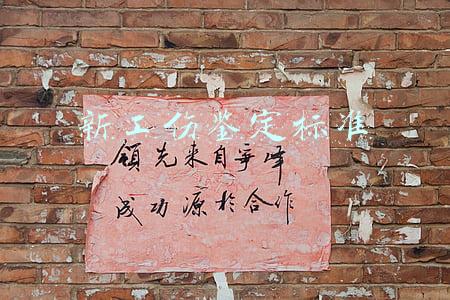 新工伤鉴定标准
领先来自争峰
成功源於合作